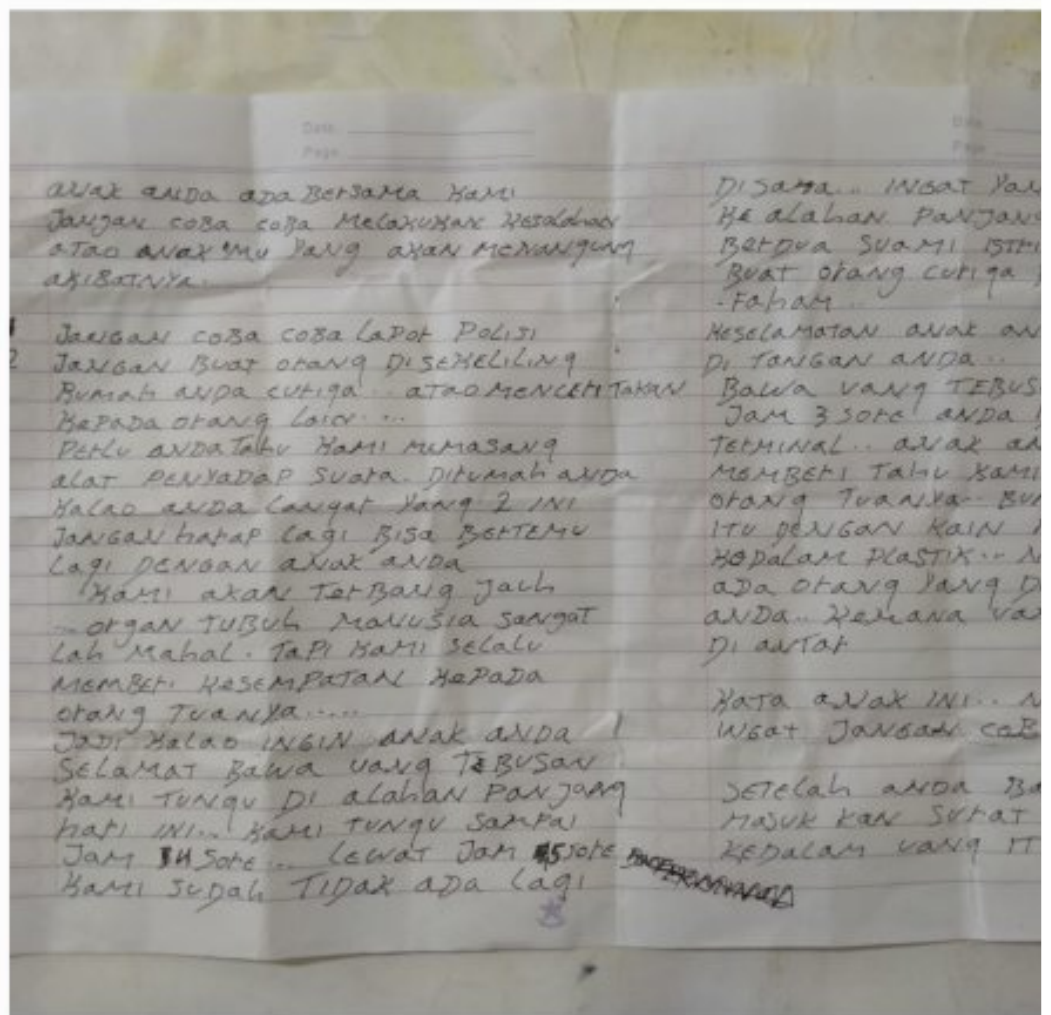 Date
Page
anak anda ada Bersama Kami
Jangan coBa coBa Melakukan Kesalahan
atao anak mu yang akan Menangung
akibatnya.
1 Jangan coBa coBa Lapor Polisi
2 Jangan Buat orang Disekeliling
Rumah anda curiga.. atao Menceritakan
Kepada orang Lain....
Perlu anda Tahu Kami Mimasang
alat Penyadap Suara. Dirumah anda
Kalao anda Langar yang 2 ini
Jangan harap Lagi Bisa Bertemu
Lagi Dengan anak anda
Kami akan Terbang Jauh
.. organ TuBuh Manusia Sangat
Lah Mahal. Tapi Kami Selalu
MemBeri Kesempatan Kepada
orang Tuanya.....
Jadi Kalao ingin anak anda
Selamat Bawa uang Tebusan
Kami Tungu Di alahan Panjang
hari ini.. Kami Tungu Sampai
Jam Sore... Lewat Jam 5 Sore
Kami Sudah Tidak ada Lagi
Date
Page
Disana... Ingat
Ke alahan Panjang
Berdua Suami
Buat orang curiga
- Faham..
Keselamatan anak
Di Tangan anda..
Bawa uang
Jam 3 Sore anda
Terminal.. anak
Memberi Tahu Kami
orang Tuanya..
itu Dengan Kain
Kedalam Plastik..
ada orang yang
anda.. Kemana
Di antar
Kata anak ini..
Ingat Jangan
Setelah anda
Masuk kan Surat
Kedalam uang